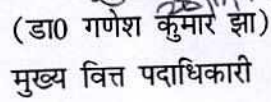 (डा0 गणेश कुमार झा)
मुख्य वित्त पदाधिकारी